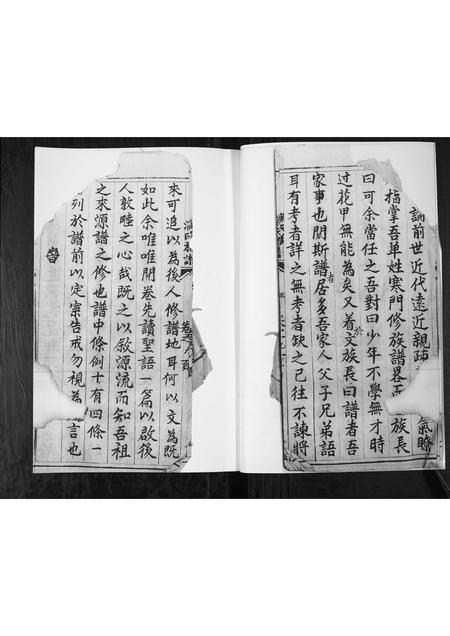 論前世近代遠近親疎
氣瞭
指掌吾單姓寒門修族譜畧
族長
曰可余當任之吾對曰少年不學無才時
過花甲無能為矣又着於文族長曰譜者吾
家事也閱斯譜者居多吾家人父子兄弟語
耳有考者詳之無考者欽之已往不諫將
來可追以為後人修譜地耳何以文為既
如此余唯唯開卷先讀聖語一篇以啟後
人敦睦之心哉既之以敘源流而知吾祖
之來源譜之修也譜中條例十有四條一
列於譜前以定案告戒勿視為
言也